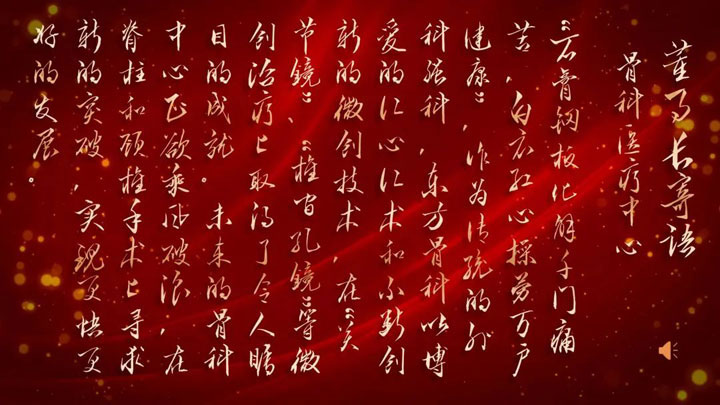 董事长寄语
骨科医疗中心
“玄骨钢板化解千门痛
苦,白衣红心操劳万户
健康”,作为传统的外
科强科,东方骨科以博
爱的仁心仁术和不断创
新的微创技术,在“关
节镜”、“椎间孔镜”等微
创治疗上取得了令人瞩
目的成就。未来的骨科
中心正欲乘风破浪,在
脊柱和颈椎手术上寻求
新的突破,实现更快更
好的发展。